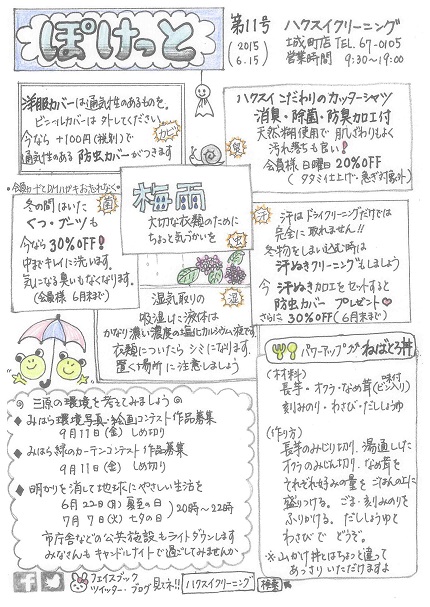 ぽけっと
第11号
(2015 6.15)
ハクスイクリーニング
城町店 TEL. 67-0105
営業時間 9:30~19:00
洋服カバーは通気性のあるものを。
ビニールカバーは外してください。
今なら +100円(税別)で
通気性のある 防虫カバーがつきます
カビ
臭
ハクスイこだわりのカッターシャツ
消臭・除菌・防臭加工付
天然糊使用で 肌ざわりもよく
汚れ落ちも良い!
会員様 日曜日 20%OFF
(タタミ仕上げ・急ぎは除外)
会員カードとDMハガキおわすれなく
冬の間はいた
くつ・ブーツも
今なら 30%OFF!
中までキレイに洗います。
気になる臭いもなくなります。
(会員様 6月末まで)
菌
梅雨
大切な衣類のために
ちょっと気づかいを
虫
汗
汗はドライクリーニングだけでは
完全に取れません!!
冬物をしまい込む時は
汗ぬきクリーニングもしましょう
今 汗ぬき加工をセットすると
防虫カバー プレゼント♡
さらに 30%OFF (6月末まで)
湿気取りの
湿
吸湿した液体は
かなり濃い濃度の塩化カルシウム液です。
衣類についたら シミになります。
置く場所に 注意しましょう
パワーアップ! ねばとろ丼
(材料)
長芋・オクラ・なめ茸(味付ビン入り)
刻みのり・わさび・だししょうゆ
(作り方)
長芋のみじん切り、湯通しした
オクラのみじん切り、なめ茸を
それぞれ好みの量を ごはんの上に
盛りつける。 ごま・刻みのりを
ふりかける。 だししょうゆと
わさびで どうぞ。
※ 山かけ丼とはちょっと違って
あっさり いただけますよ
◎ 三原の環境を考えてみましょう ◎
◆ みはら環境写真・絵画コンテスト作品募集
9月11日(金) しめ切り
◆ みはら緑のカーテンコンテスト作品募集
9月11日(金) しめ切り
◆ 明かりを消して地球にやさしい生活を
6月22日(月) 夏至の日
7月 7日(火) 七夕の日
20時~22時
市庁舎などの公共施設もライトダウンします
みなさんも キャンドルナイトで過ごしてみませんか
フェイスブック
ツイッター・ブログ 見てネ!!
ハクスイクリーニング
検索